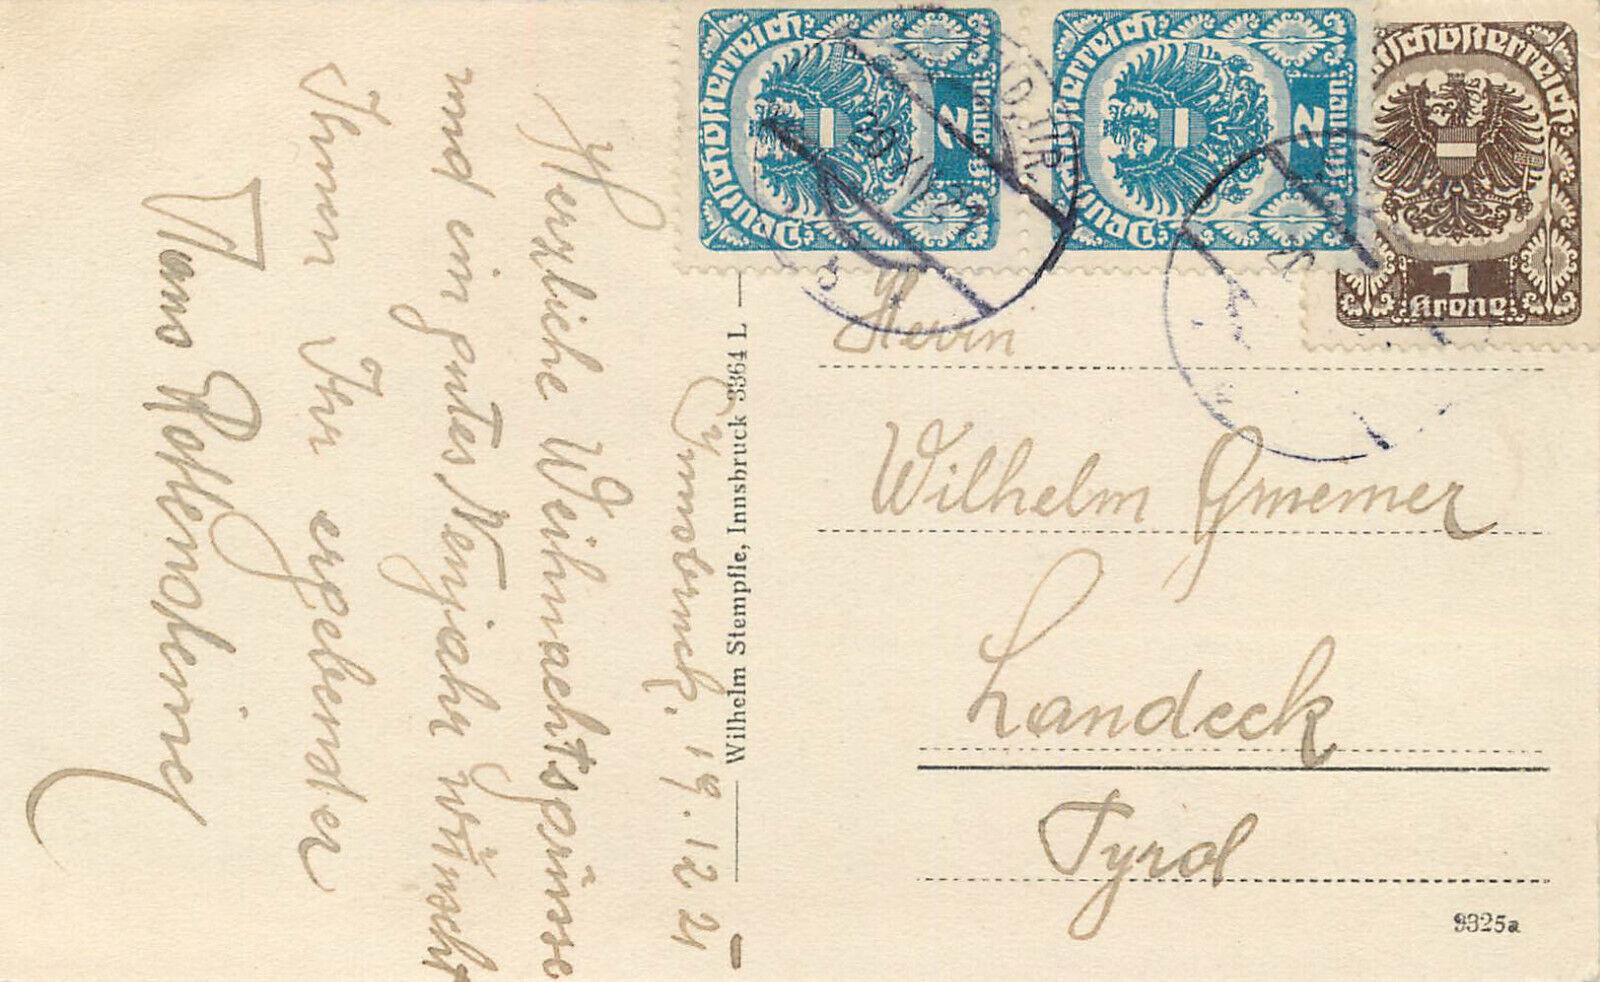 Innsbruck, 19.12.21
Herzliche Weihnachtsgrüsse
und ein gutes Neujahr wünscht
Ihnen Ihr ergebenster
Hans
Wilhelm Stempfle, Innsbruck 3364 L
Deutschösterreich
2
Kronen
Deutschösterreich
2
Kronen
Deutschösterreich
1
Krone
20.XII.21
Herrn
Wilhelm Gmeiner
Landeck
Tyrol
9325a